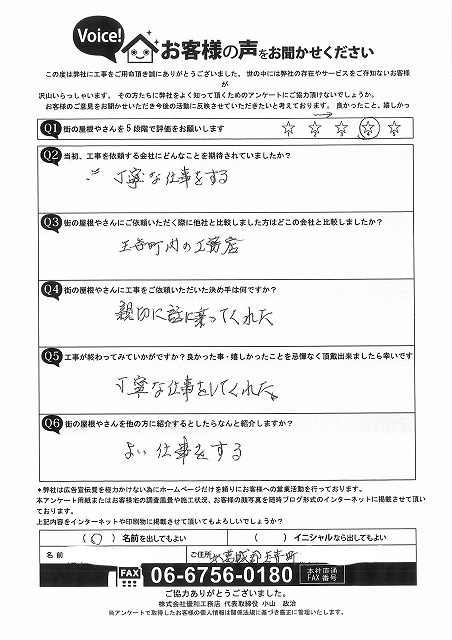 Voice!
お客様の声をお聞かせください
この度は弊社に工事をご用命頂き誠にありがとうございました。世の中には弊社の存在やサービスをご存知ないお客様が
沢山いらっしゃいます。その方たちに弊社をよく知って頂くためのアンケートにご協力頂けないでしょうか。
お客様のご意見をお聞かせいただき今後の活動に反映させていただきたいと考えております。良かったこと、嬉しかっ
Q1 街の屋根やさんを5段階で評価をお願いします
☆1 ☆2 ☆3 ☆4 ☆5
Q2 当初、工事を依頼する会社にどんなことを期待されていましたか？
丁寧な仕事をする
Q3 街の屋根やさんにご依頼いただく際に他社と比較しました方はどこの会社と比較しましたか？
王寺町内の工務店
Q4 街の屋根やさんに工事をご依頼いただいた決め手は何ですか？
親切に話に乗ってくれた
Q5 工事が終わってみていかがですか？良かった事・嬉しかったことを忌憚なく頂戴出来ましたら幸いです
丁寧な仕事をしてくれた。
Q6 街の屋根やさんを他の方に紹介するとしたらなんと紹介しますか？
よい仕事をする
＊弊社は広告宣伝費を極力かけない為にホームページだけを頼りにお客様への営業活動を行っております。
本アンケート用紙またはお客様宅の調査風景や施工状況、お客様の顔写真を随時ブログ形式のインターネットに掲載させて頂いて
おります。
上記内容をインターネットや印刷物に掲載させて頂いてもよろしいでしょうか？
（○）名前を出してもよい （ ）イニシャルなら出してもよい
名前 ご住所 北葛城郡王寺町
FAX 06-6756-0180 本社直通 FAX番号
ご協力ありがとうございました。
株式会社優和工務店 代表取締役 小山 政治
当アンケートで取得したお客様の個人情報は関係法規に基づき適正に管理いたします。